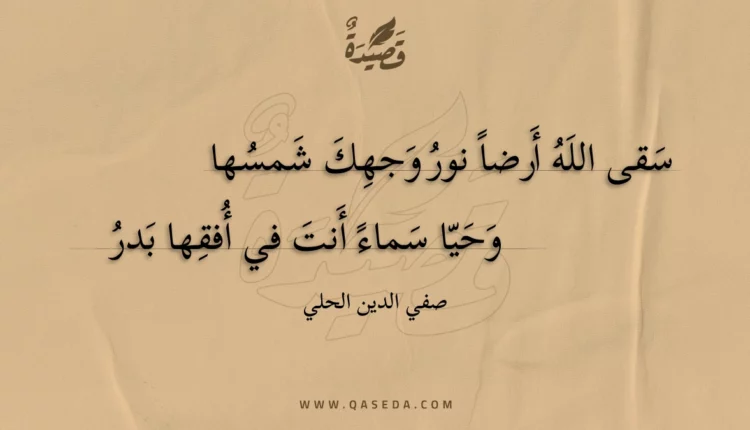 قَصِيدَةٌ
سَقى اللَهُ أَرضاً نورُ وَجهِكَ شَمسُها
وَحَيّا سَماءً أَنتَ في أُفقِها بَدرُ
صفي الدين الحلي
WWW.QASEDA.COM